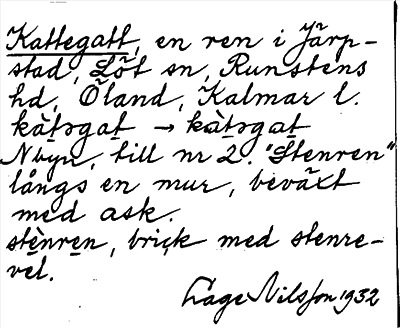 Kattegatt, en ren i Järp-
stad, Löt sn, Runstens
hd, Öland, Kalmar l.
kàtəgat → kàtəgat
Nbyn, till nr 2. "Stenren"
långs en mur, beväxt
med ask.
stènren, brick med stenre-
vel.
Låge Nilsson 1932